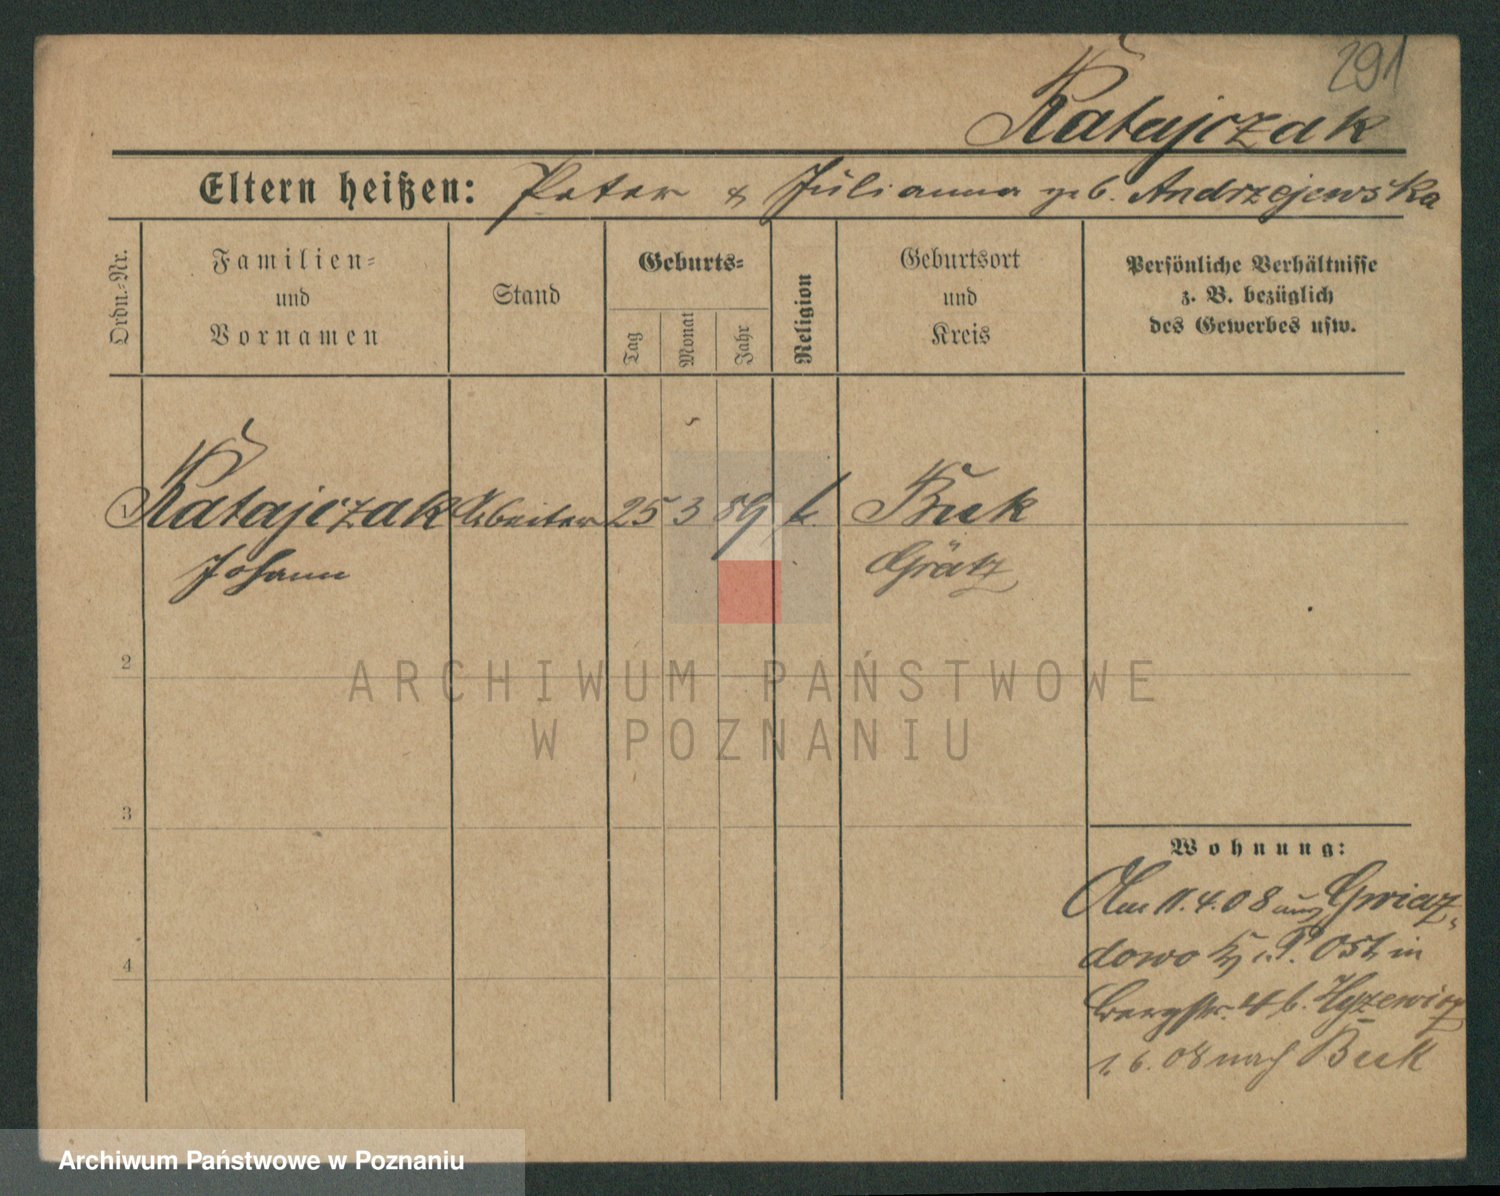 291
Ratajczak
Eltern heißen: Peter & Julianna geb. Andrzejewska
Ordn.-Nr.
Familien-
und
Vornamen
Stand
Geburts-
Tag
Monat
Jahr
Religion
Geburtsort
und
Kreis
Persönliche Verhältnisse
z. B. bezüglich
des Gewerbes usw.
1 Ratajczak Arbeiter 25 3 89 k. Buk
Johann Grätz
2
3
4
ARCHIWUM PAŃSTWOWE
W POZNANIU
Wohnung:
Am 11.4.08 aus Gwiaz-
dowo Kr. P. Ost in
Bergstr. 4 b.
1.6.08 nach Buk
Archiwum Państwowe w Poznaniu